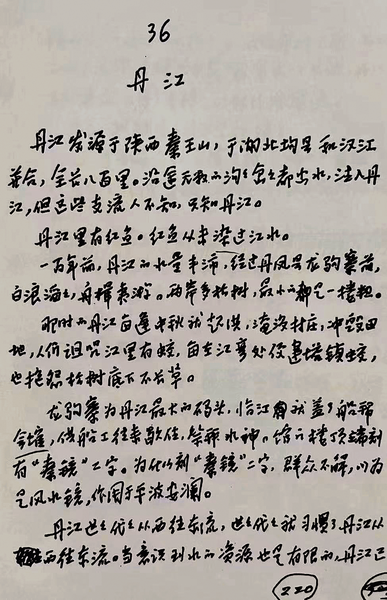 36
丹江
丹江发源于陕西秦王山，于湖北均县和汉江
荟合，全长八百里。沿途无数的沟沟岔岔都出水，注入丹
江，但这些支流人不知，只知丹江。
丹江里有红鱼。红鱼从未染过江水。
一百年前，丹江的水量丰沛，经过丹凤县龙驹寨前，
白浪滔滔，舟楫来游。两岸多柏树，最小的都是一搂粗。
那时的丹江每逢中秋就起洪，淹没村庄，冲毁田
地，人们诅咒江里有蛟，每在江弯处修建塔镇蛟，
也抱怨柏树底下不长草。
龙驹寨为丹江最大的码头，临江就盖了船帮
会馆，供船工往来歇住，祭那水神。馆前楼顶端刻
有“秦镜”二字。为什么刻“秦镜”二字，群众不解，以为
是风水镜，作用于平波安澜。
丹江世世代代从西往东流，世世代代就习惯了丹江从
西往东流。当意识到水的资源也是有限的，丹江已
220